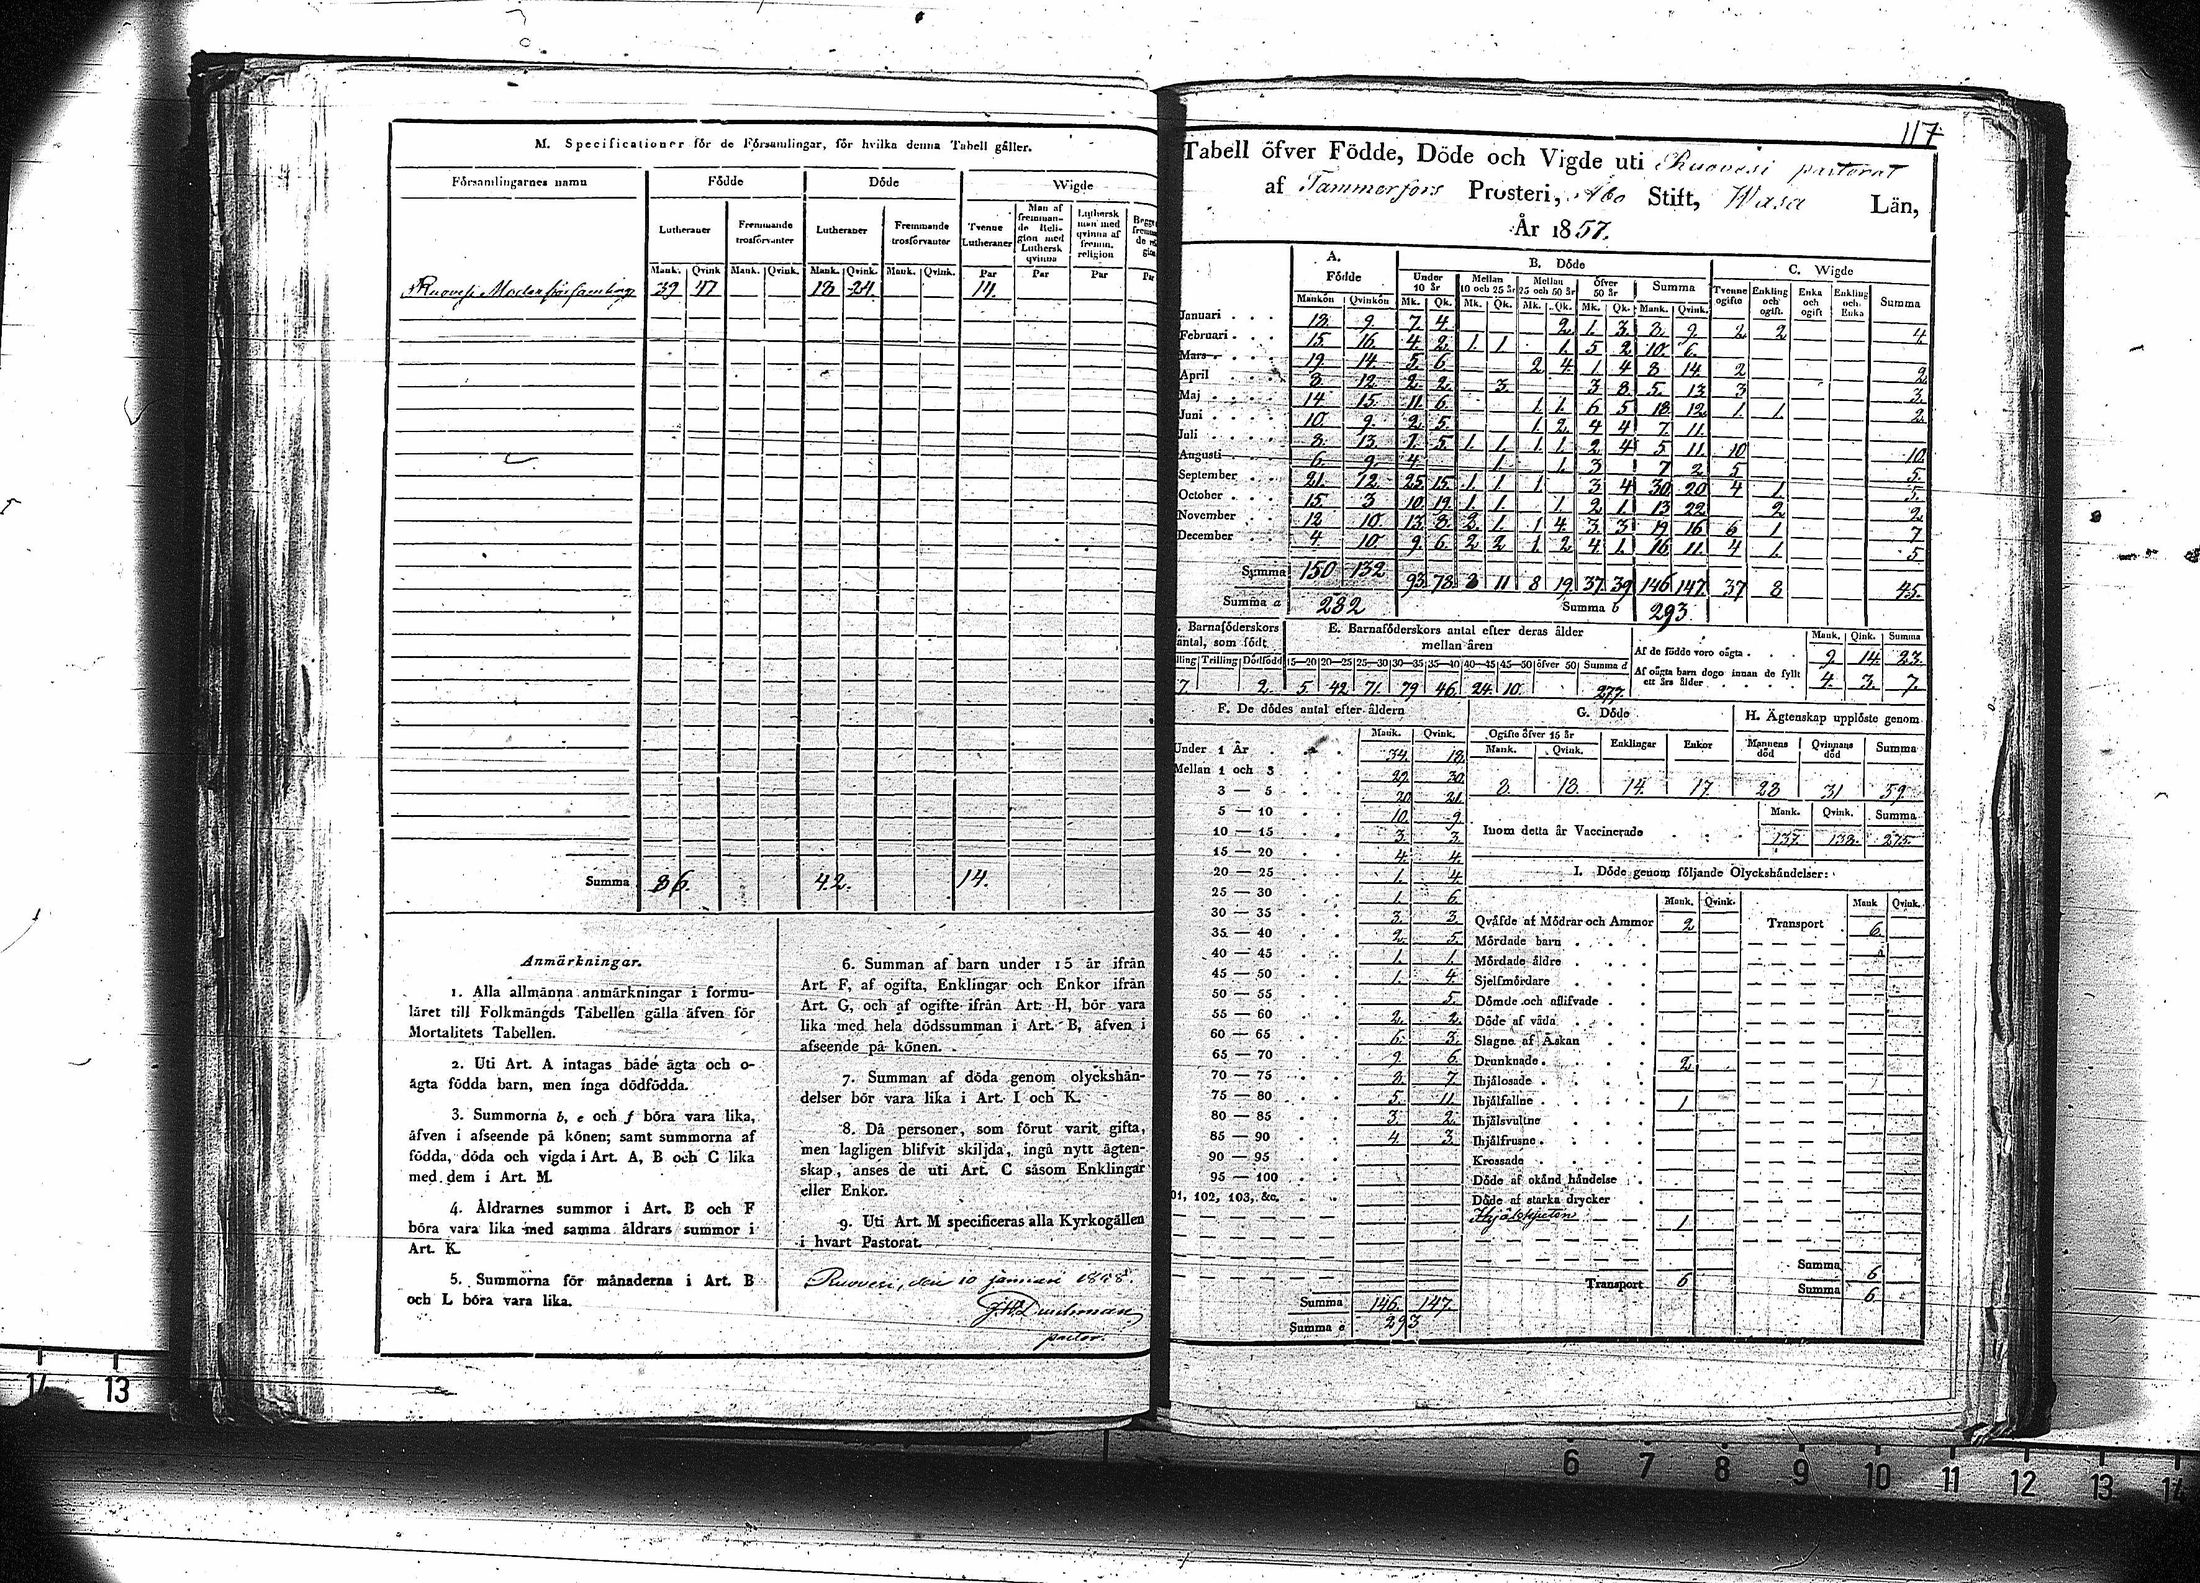 M. Specificationer för de Församlingar, för hvilka denna Tabell gäller.
Församlingarnes namn Födde Döde Wigde
Lutheraner Fremmande trosförvanter Lutheraner Fremmande trosförvanter Tvenne Lutheraner Man af fremmande Religion med Luthersk qvinna Luthersk man med qvinna af fremm. religion
Mank. Qvink Mank. Qvink. Mank. Qvink. Mank. Qvink. Par Par Par
Ruovesi Moderförsamling 39 47 18 24. 14.
Summa 86. 42. 14.
Anmärkningar.
1. Alla allmänna anmärkningar i formu-
läret till Folkmängds Tabellen gälla äfven för
Mortalitets Tabellen.
2. Uti Art. A intagas både ägta och o-
ägta födda barn, men inga dödfödda.
3. Summorna b, e och f böra vara lika,
äfven i afseende på könen; samt summorna af
födda, döda och vigda i Art. A, B och C lika
med dem i Art. M.
4. Åldrarnes summor i Art. B och F
böra vara lika med samma åldrars summor i
Art. K.
5. Summorna för månaderna i Art. B
och L böra vara lika.
6. Summan af barn under 15 år ifrån
Art. F, af ogifta, Enklingar och Enkor ifrån
Art. G, och af ogifte ifrån Art. H, bör vara
lika med hela dödssumman i Art. B, äfven i
afseende på könen.
7. Summan af döda genom olyckshän-
delser bör vara lika i Art. I och K.
8. Då personer, som förut varit gifta,
men lagligen blifvit skiljda, ingå nytt ägten-
skap, anses de uti Art. C såsom Enklingar
eller Enkor.
9. Uti Art. M specificeras alla Kyrkogällen
i hvart Pastorat.
Ruovesi, den 10 januari 1858.
pastor.
117
Tabell öfver Födde, Döde och Vigde uti Ruovesi pastorat
af Tammerfors Prosteri, Åbo Stift, Wasa Län,
År 1857.
A. Födde B. Döde C. Wigde
Under 10 år Mellan 10 och 25 år Mellan 25 och 50 år Öfver 50 år Summa Tvenne ogifte Enkling och ogift. Enka och ogift Enkling och Enka Summa
Mankön Qvinkön Mk. Qk. Mk. Qk. Mk. Qk. Mk. Qk. Mank. Qvink.
Januari 18. 9. 7. 4. 2. 1. 3. 8. 9. 2 2 4.
Februari 15. 16. 4. 2. 1. 1. 1. 5 2 10. 6.
Mars 19 14. 5. 6. 2 4. 1. 4 8 14 2 2
April 8. 12. 2. 2. 3. 3 8. 5. 13 3 3.
Maj 14 15. 11. 6. 1. 1. 6 5 18. 12. 1. 1. 2.
Juni 10. 9. 2. 5. 1. 2. 4 4 7. 11.
Juli 8. 13. 1. 5. 1. 1. 1. 1. 2 4 5 11. 10 10.
Augusti 6. 9. 4. 1. 1. 3 7 2 5 5.
September 21. 12. 25. 15. 1. 1. 1. 3 4 30 20 4 1. 5.
October 15. 3 10. 19. 1. 1. 1. 2 1. 13 22 2 2
November 12 10. 13. 8. 2. 1. 1 4. 3 3 19 16 6 1 7
December 4. 10 9. 6. 2 2 1. 2 4 1. 16 11. 4 1. 5
Summa 150 132 93. 78. 8 11 8 19. 37. 39 146 147. 37 8 45.
Summa a 282 Summa b 293.
Barnaföderskors antal, som födt
Trilling Dödfödd
7. 2.
E. Barnaföderskors antal efter deras ålder
mellan åren
15—20 20—25 25—30 30—35 35—40 40—45 45—50 öfver 50 Summa d
5. 42. 71. 79 46. 24. 10. 277.
Mank. Qink. Summa
Af de födde voro oägta 9 14 23.
Af oägta barn dogo innan de fyllt
ett års ålder 4. 3. 7.
F. De dödes antal efter åldern
Mank. Qvink.
Under 1 År 34. 18.
Mellan 1 och 3 29. 30.
3 — 5 20. 21.
5 — 10 10. 9
10 — 15 3. 3.
15 — 20 4. 4.
20 — 25 1. 4.
25 — 30 1. 6.
30 — 35 3. 3.
35 — 40 2. 5.
40 — 45 1. 1.
45 — 50 1. 4.
50 — 55 5.
55 — 60 2. 2.
60 — 65 6. 3.
65 — 70 9. 6.
70 — 75 8. 7.
75 — 80 5. 11.
80 — 85 3. 2.
85 — 90 4. 3.
90 — 95
95 — 100
101, 102, 103, &c.
Summa 146. 147.
Summa e 293
G. Döde
Ogifte öfver 15 år Enklingar Enkor
Mank. Qvink.
8. 18. 14. 17.
H. Ägtenskap upplöste genom
Mannens död Qvinnans död Summa
28 31 59.
Mank. Qvink. Summa
Inom detta år Vaccinerade 137. 138. 275.
I. Döde genom följande Olyckshändelser:
Mank. Qvink. Mank Qvink.
Qväfde af Mödrar och Ammor 2 Transport 6.
Mördade barn
Mördade äldre
Sjelfmördare
Dömde och aflifvade
Döde af våda
Slagne af Åskan
Drunknade 2.
Ihjälosade
Ihjälfallne 1
Ihjälsvultne
Ihjälfrusne
Krossade
Döde af okänd händelse
Döde af starka drycker
1
Transport 6
Summa 6
Summa 6.
14 13
6 7 8 9 10 11 12 13 14